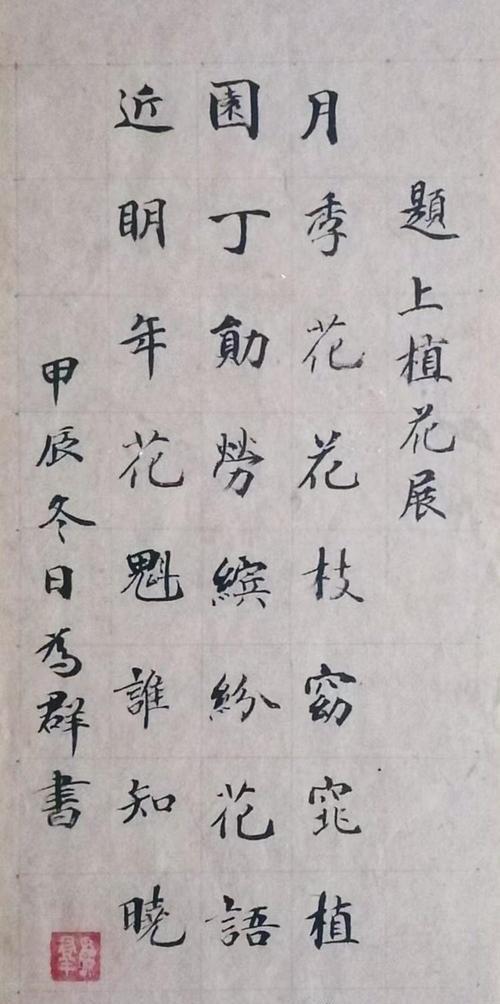 題上植花展
月季花花枝窈窕植
園丁勛勞繽紛花語
近明年花魁誰知曉
甲辰冬日為群書